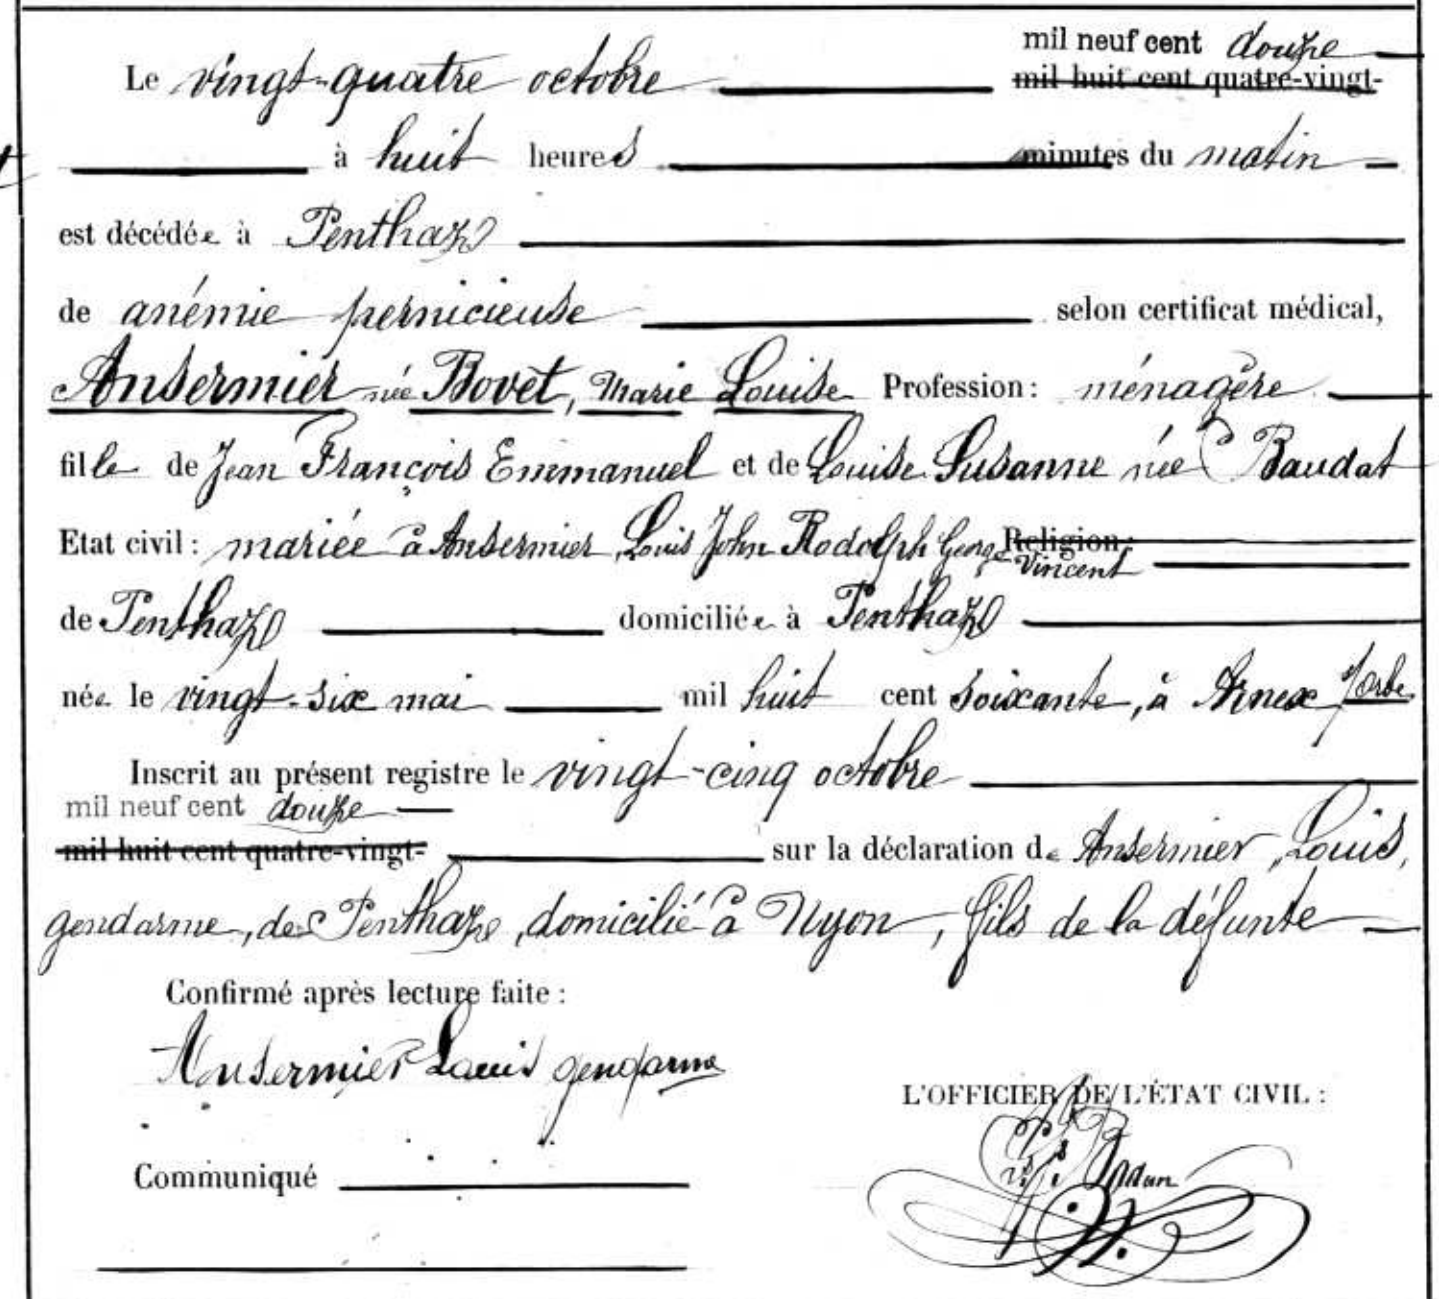 mil neuf cent douze
Le vingt-quatre octobre mil huit cent quatre-vingt-
à huit heures minutes du matin
est décédée à Penthaz
de anémie pernicieuse selon certificat médical,
Ansermier née Bovet, Marie Louise Profession: ménagère
fille de Jean François Emmanuel et de Louise Susanne née Baudat
Etat civil: mariée à Ansermier, Louis John Rodolph George Religion:
Vincent
de Penthaz domiciliée à Penthaz
née le vingt-six mai mil huit cent soixante, à Arnex s/Orbe
Inscrit au présent registre le vingt-cinq octobre
mil neuf cent douze
mil huit cent quatre-vingt- sur la déclaration de Ansermier, Louis,
gendarme, de Penthaze, domicilié à Nyon, fils de la défunte
Confirmé après lecture faite:
Ansermier Louis gendarme
L'OFFICIER DE L'ÉTAT CIVIL:
Communiqué